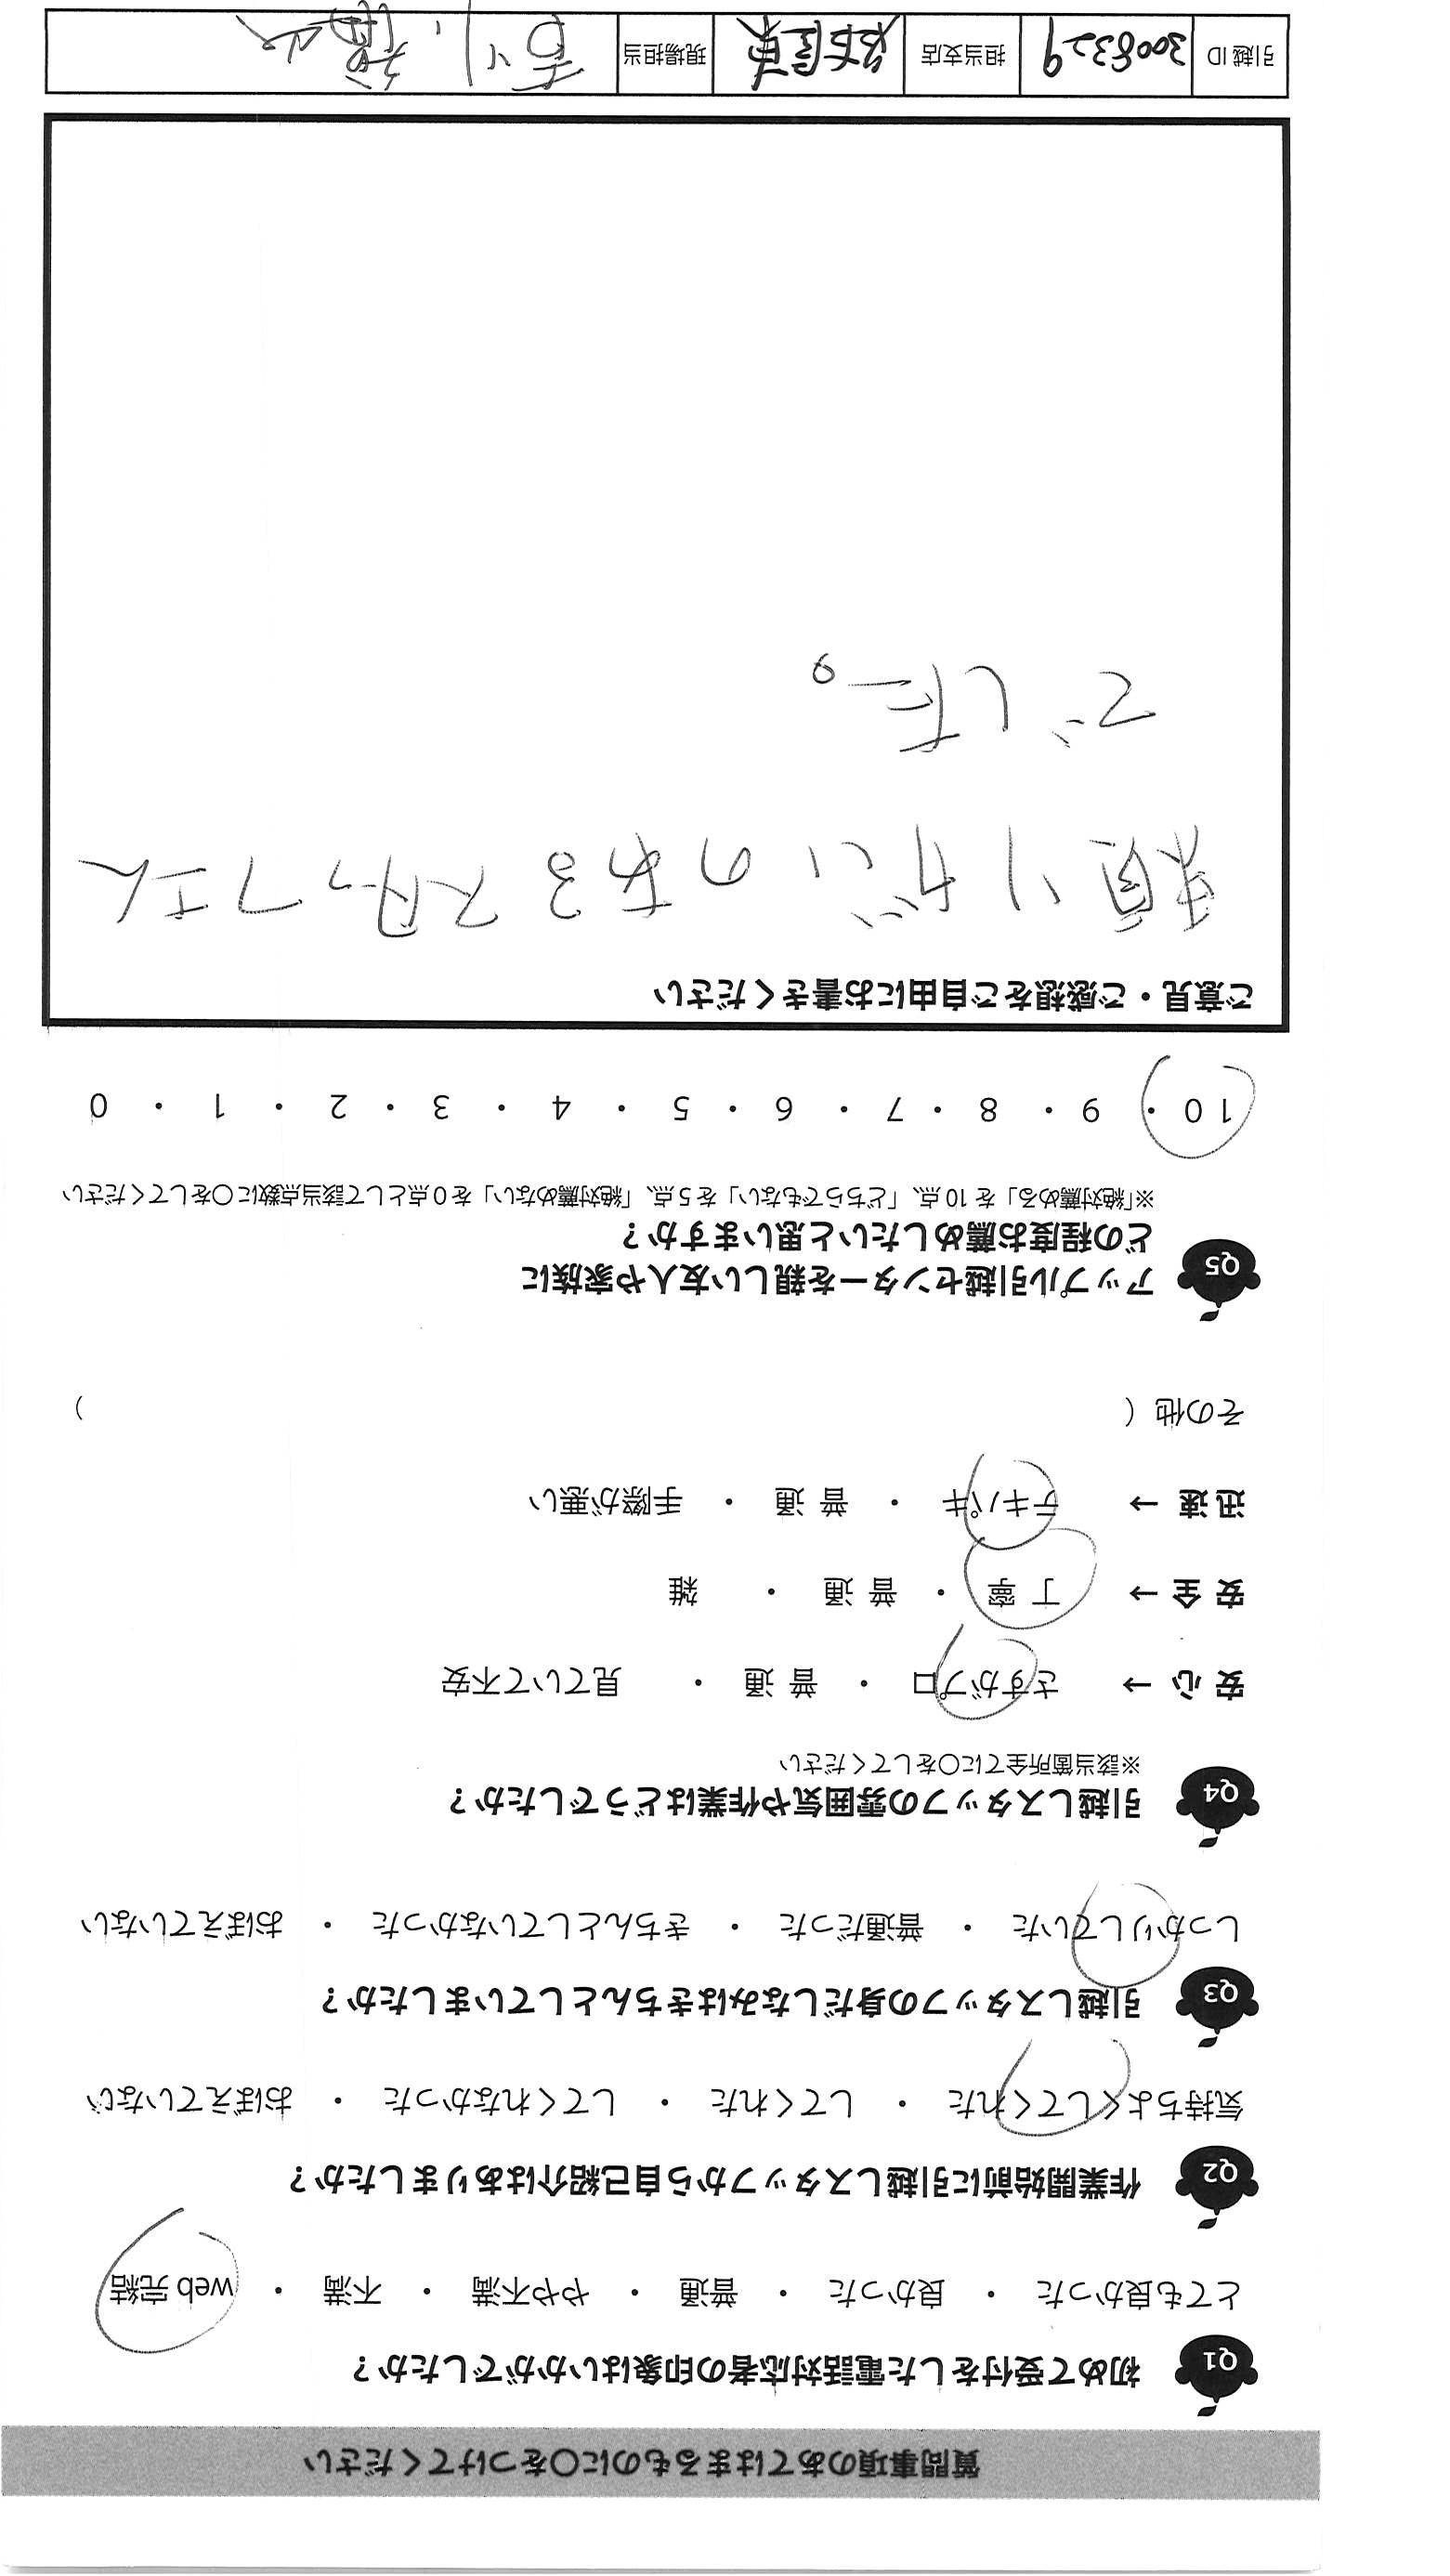 質問事項のあてはまるものに○をつけてください
Q1 初めて受付をした電話対応者の印象はいかがでしたか？
とても良かった ・ 良かった ・ 普通 ・ やや不満 ・ 不満 ・ web 完結
Q2 作業開始前に引越しスタッフから自己紹介はありましたか？
気持ちよくしてくれた ・ してくれた ・ してくれなかった ・ おぼえていない
Q3 引越しスタッフの身だしなみはきちんとしていましたか？
しっかりしていた ・ 普通だった ・ きちんとしていなかった ・ おぼえていない
Q4 引越しスタッフの雰囲気や作業はどうでしたか？
※該当箇所全てに○をしてください
安心→ さすがプロ ・ 普通 ・ 見ていて不安
安全→ 丁寧 ・ 普通 ・ 雑
迅速→ テキパキ ・ 普通 ・ 手際が悪い
その他（ ）
Q5 アップル引越センターを親しい友人や家族に
どの程度お薦めしたいと思いますか？
※「絶対薦める」を10点、「どちらでもない」を5点、「絶対薦めない」を0点として該当点数に○をしてください
10 ・ 9 ・ 8 ・ 7 ・ 6 ・ 5 ・ 4 ・ 3 ・ 2 ・ 1 ・ 0
ご意見・ご感想をご自由にお書きください
頼りがいのあるスタッフさん
でした。
引越ID 3008329 担当支店 現場担当